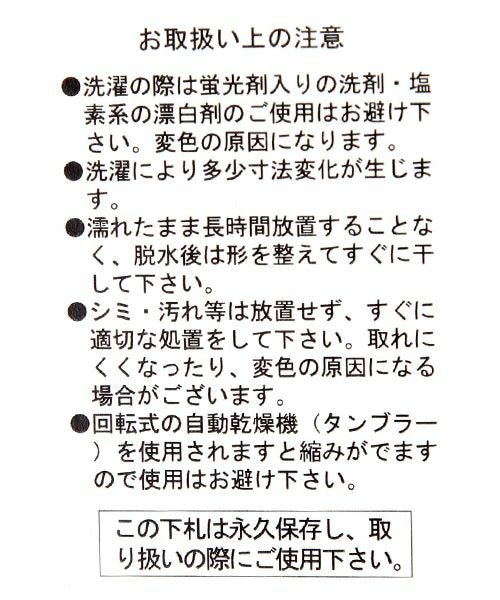 お取扱い上の注意
●洗濯の際は蛍光剤入りの洗剤・塩
素系の漂白剤のご使用はお避け下
さい。変色の原因になります。
●洗濯により多少寸法変化が生じま
す。
●濡れたまま長時間放置することな
く、脱水後は形を整えてすぐに干
して下さい。
●シミ・汚れ等は放置せず、すぐに
適切な処置をして下さい。取れに
くくなったり、変色の原因になる
場合がございます。
●回転式の自動乾燥機（タンブラー
）を使用されますと縮みがでます
ので使用はお避け下さい。
この下札は永久保存し、取
り扱いの際にご使用下さい。